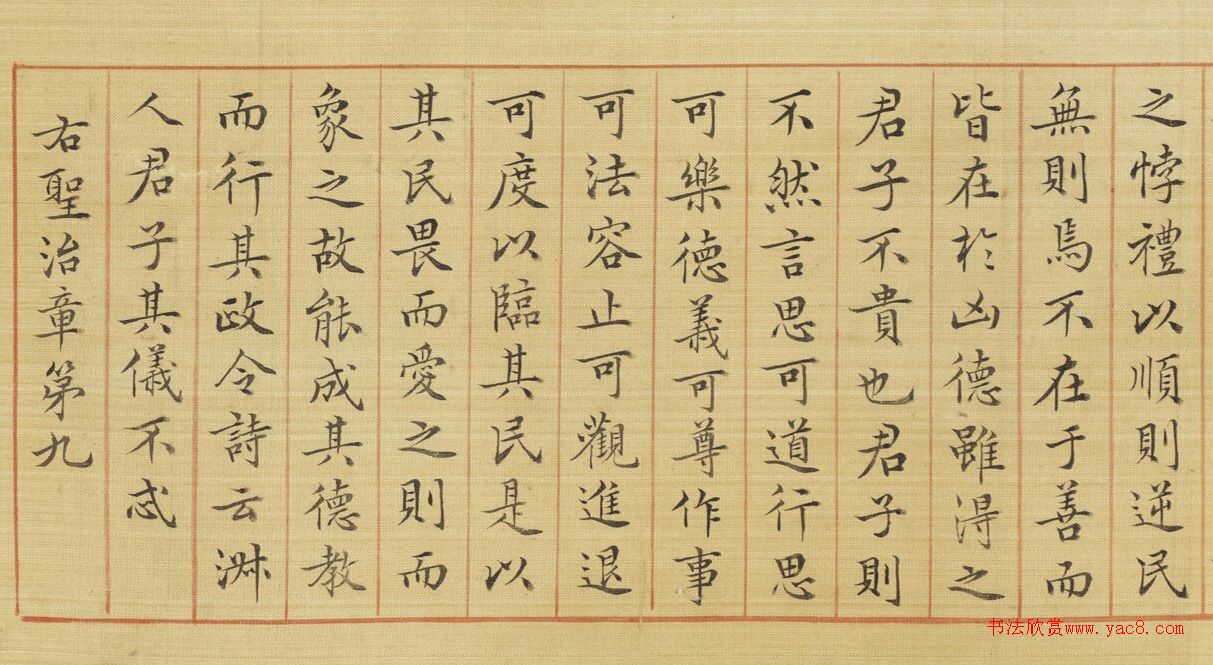 之悖禮以順則逆民
無則焉不在于善而
皆在於凶德雖得之
君子不貴也君子則
不然言思可道行思
可樂德義可尊作事
可法容止可觀進退
可度以臨其民是以
其民畏而愛之則而
象之故能成其德教
而行其政令詩云淑
人君子其儀不忒
右聖治章第九
书法欣赏www.yac8.com